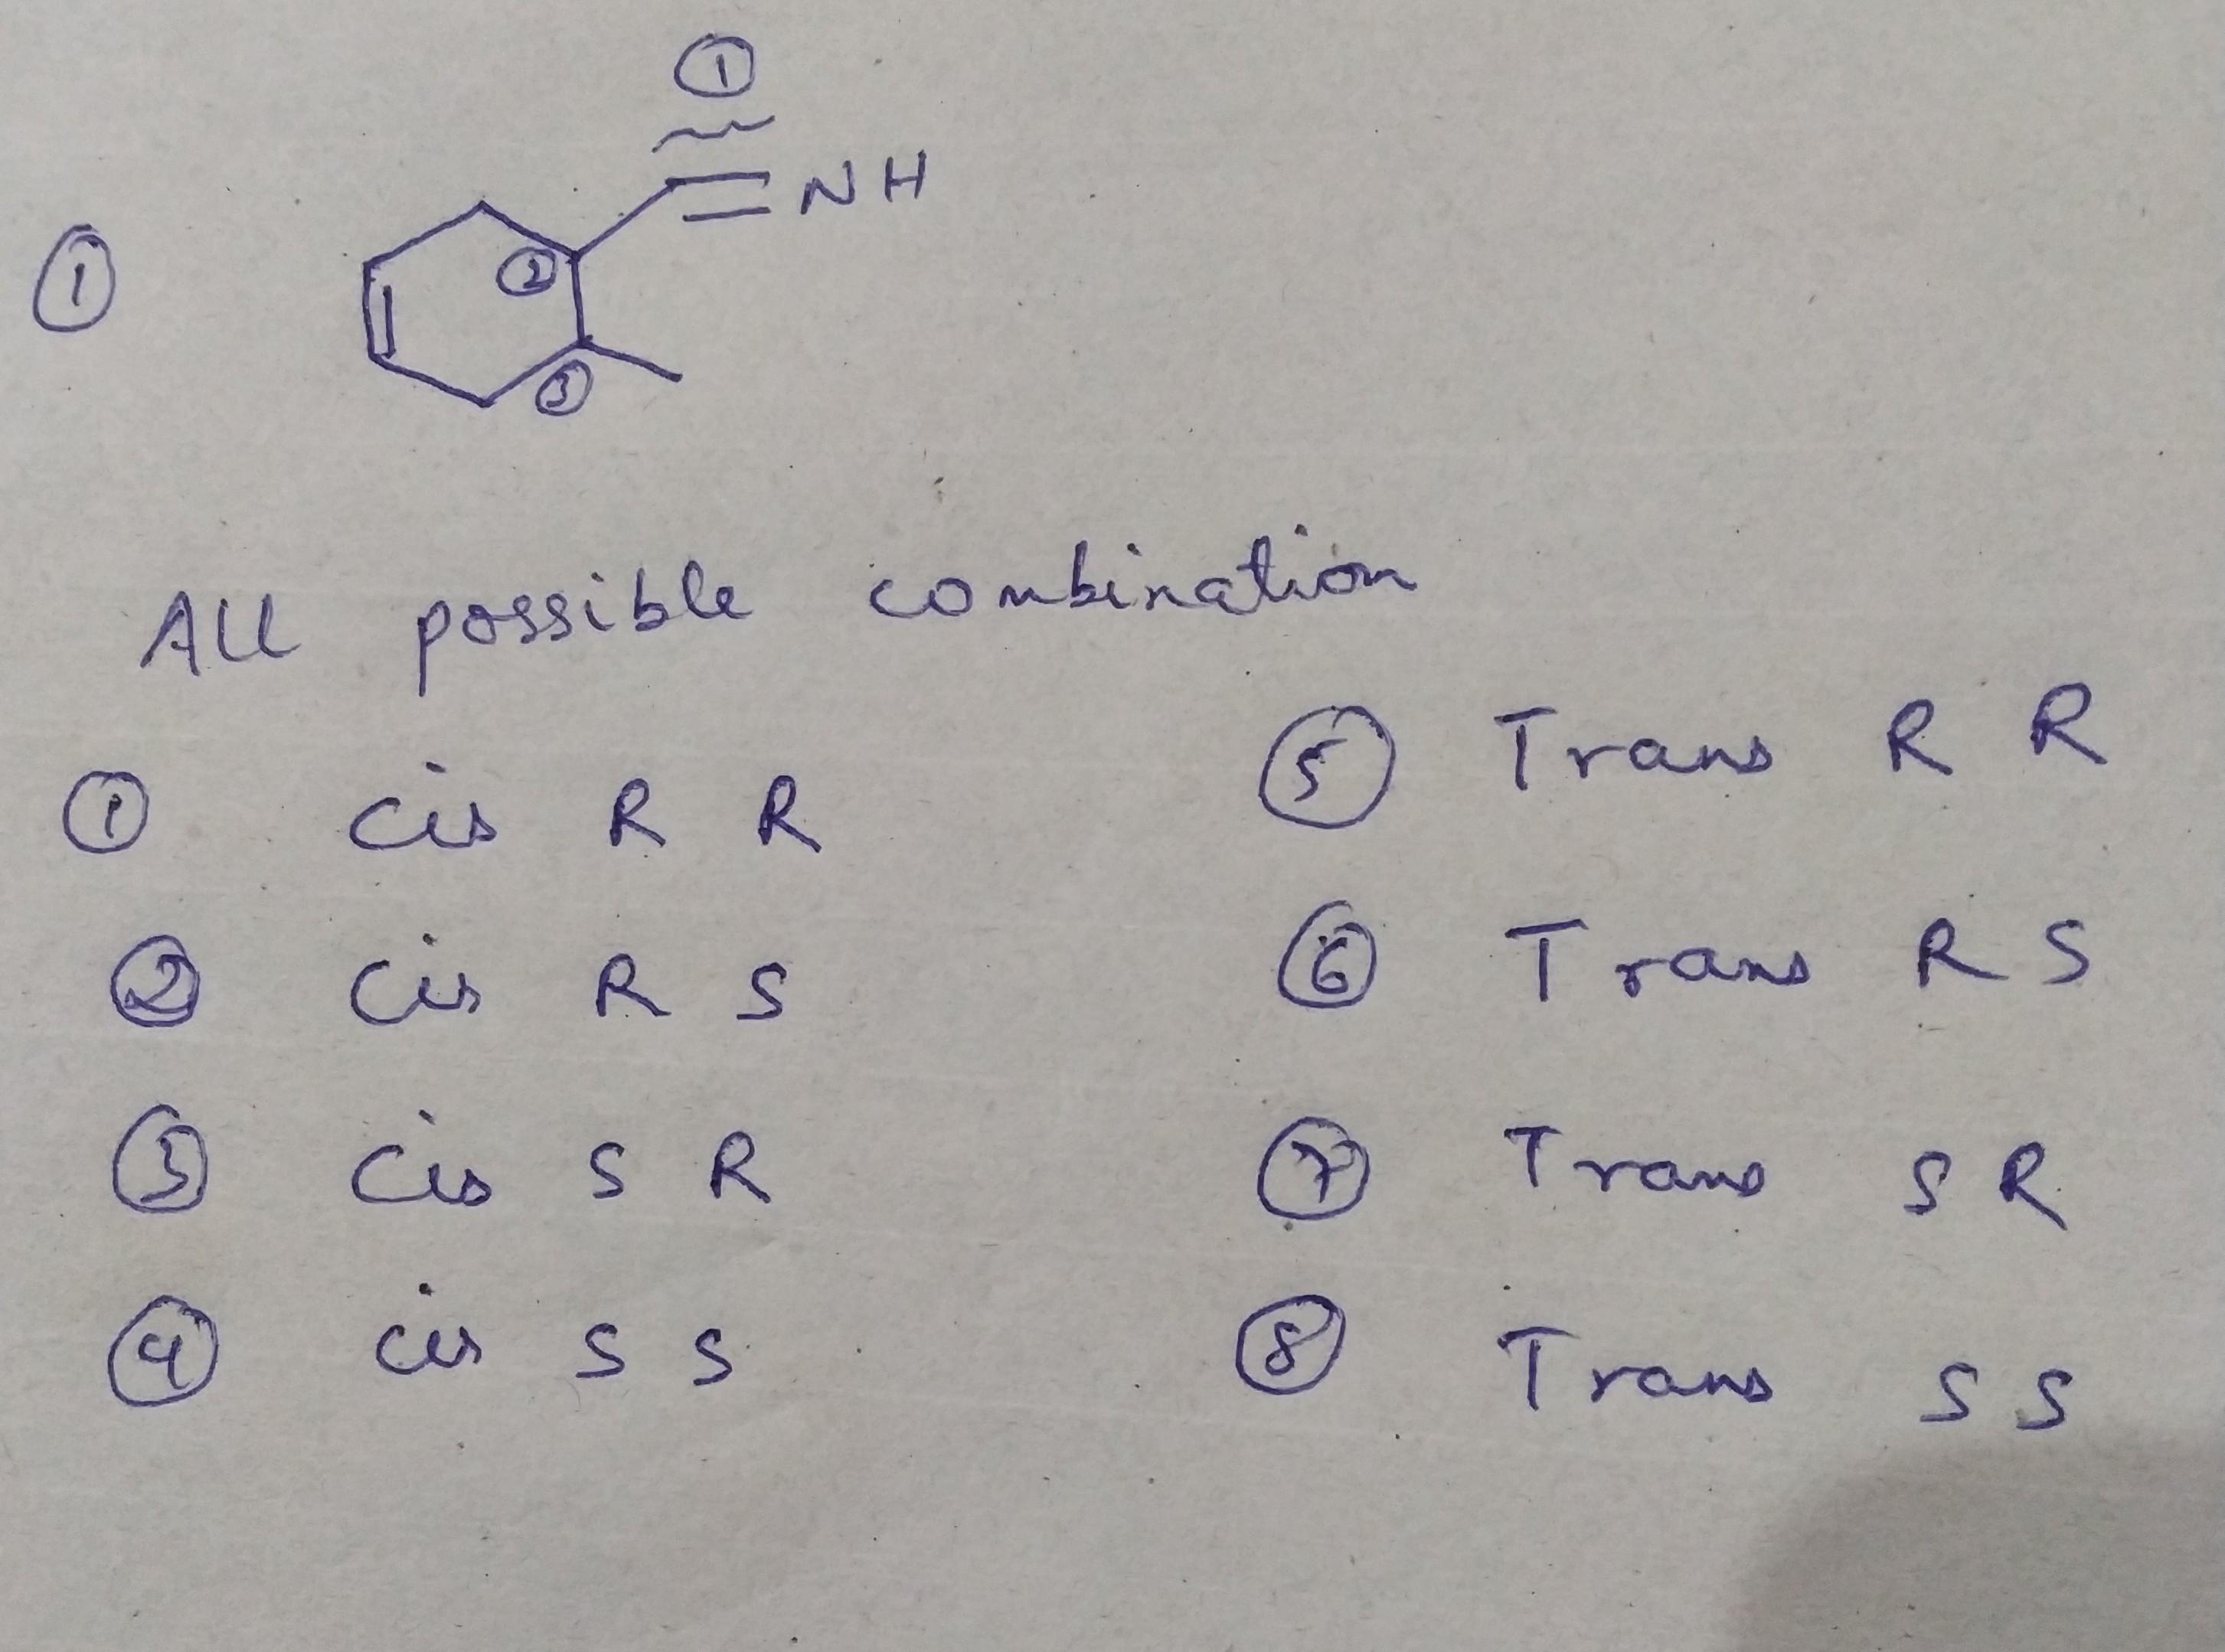 ①
NH
①
②
③
All possible combination
① cis R R
② cis R S
③ cis S R
④ cis S S
⑤ Trans R R
⑥ Trans R S
⑦ Trans S R
⑧ Trans S S